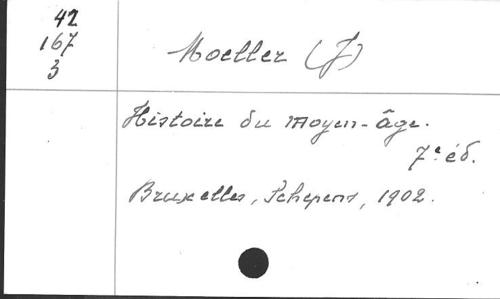 42
167
3
Moeller (J)
Histoire du moyen-âge.
7e éd.
Bruxelles, Schepens, 1902.